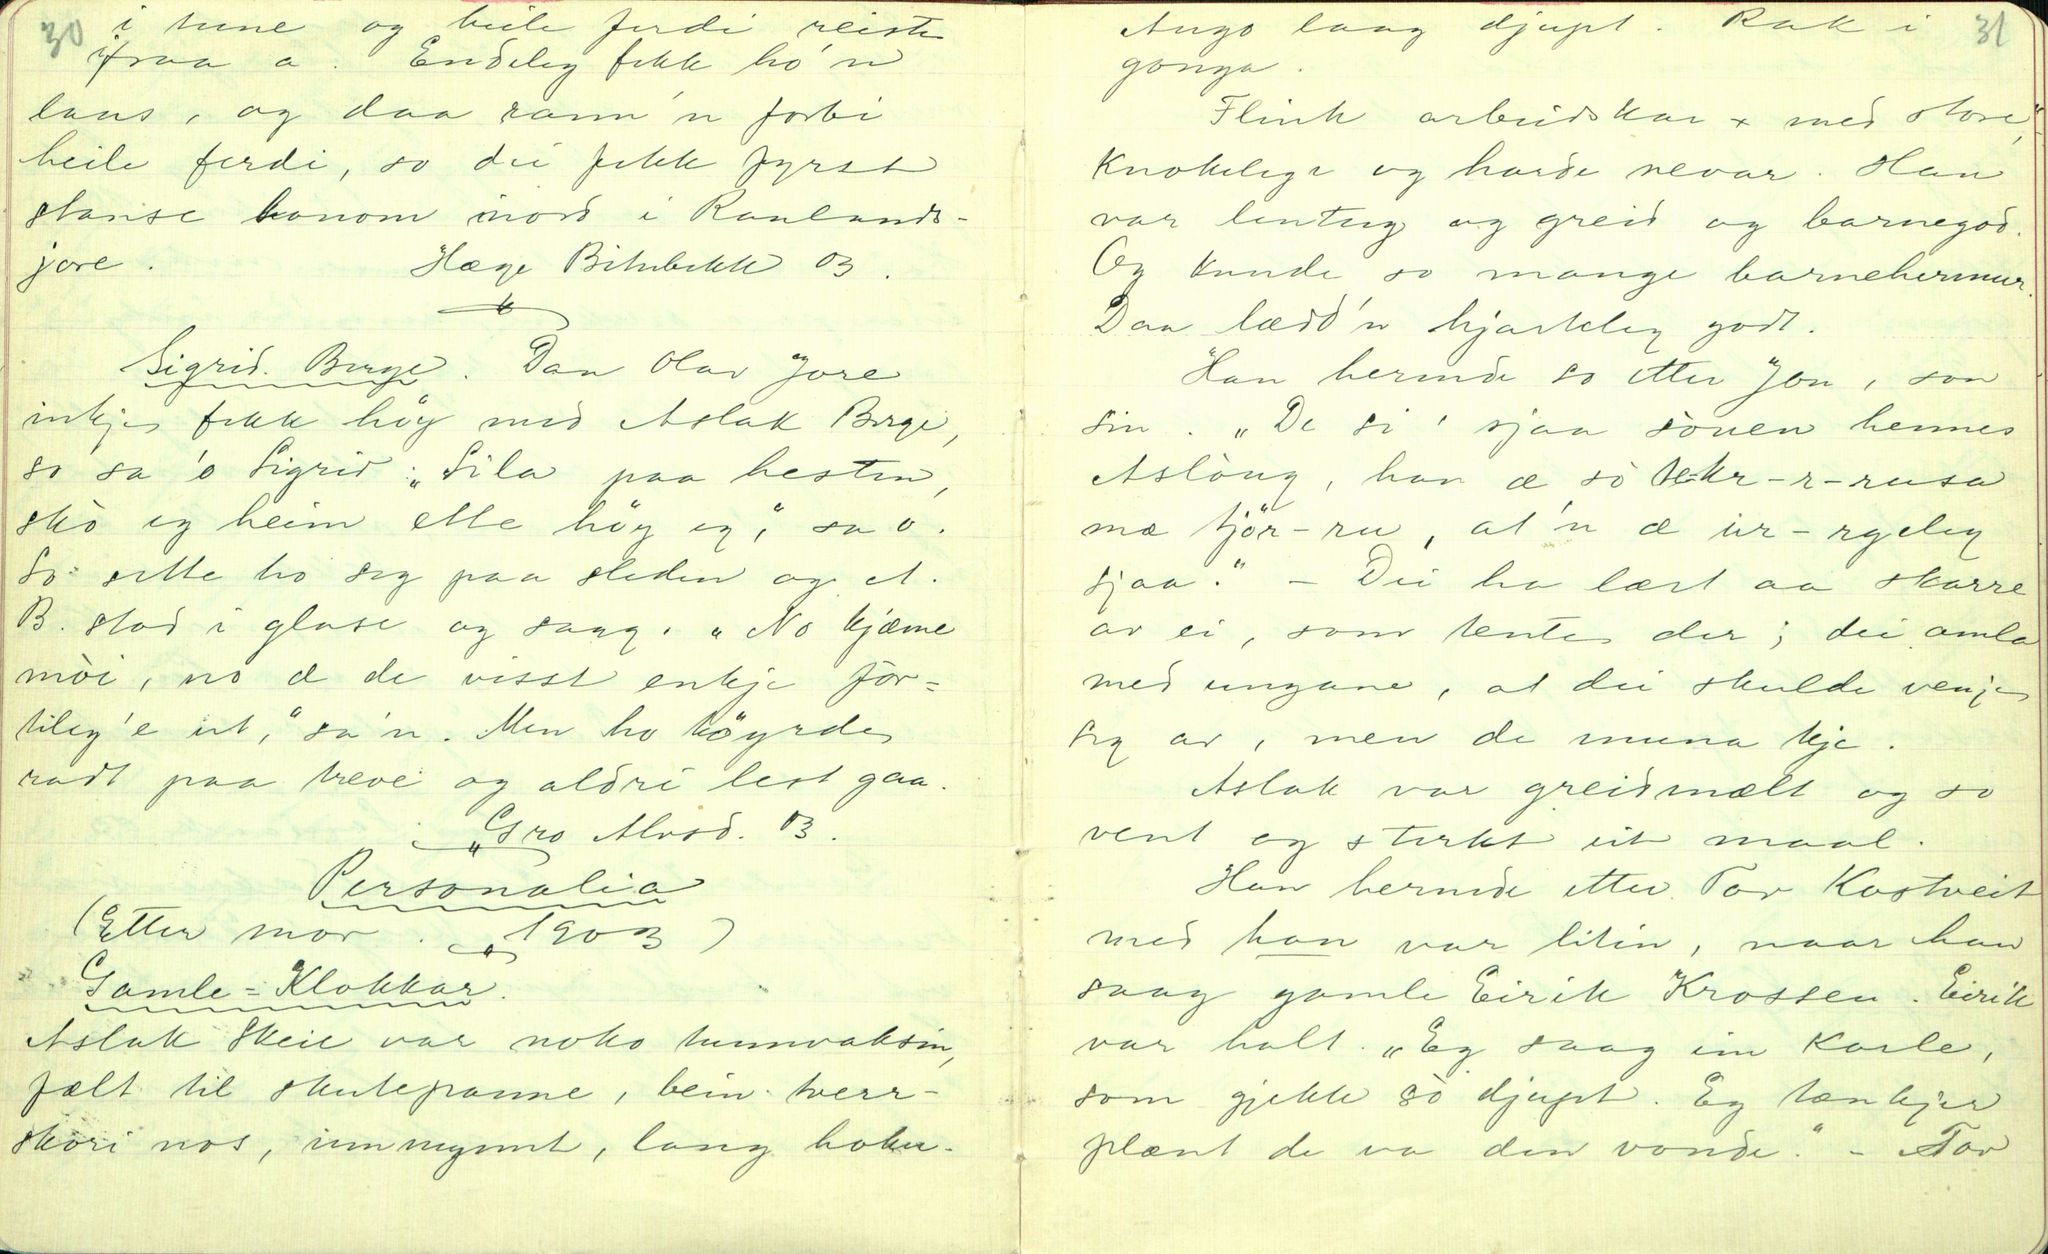 30
i tune og heile ferdi reiste
ifraa a. Endeleg fekk ho'n
laus, og daa rann'n forbi
heile ferdi, so dei fekk fyrst
stanse honom nord i Raulands-
jore. Hæge Bitubekk 03.
Sigrid Berge. Daa Olav Jore
inkje fekk höy med Aslak Berge,
so sa 'o Sigrid: „Sila paa hesten,
skò eg heim ette höy eg,“ sa o.
So sette ho seg paa sleden og A.
B. stod i glase og saag. „No kjæme
mòi, no æ de visst enkje fòr=
tileg'e ut,“ sa'n. Men ho köyrde
radt paa treve og aldri lest gaa.
Gro Alvsd. 03.
Personalia
(Etter mor. 1903)
Gamle=Klokkar.
Aslak Skeie var noko tunnvaksin,
fælt til skutepanne, bein tverr-
skori nos, innmynnt, lang hoku.
31
Augo laag djupt. Rak i
gonga.
Flink arbeidskar x med store,
knokelege og harde nevar. Han
var lentug og greid og barnegod.
Og kunde so mange barnehermur.
Daa lædd'n hjarteleg godt.
Han hermde so etter Jon, son
sin. „De si' sjaa sònen hennes
Aslòug, han æ sò kr-r-rusa
mæ tjör-ru, at'n æ ur-rgeleg
sjaa.“ – Dei ha lært aa skarre
av ei, som tente der; dei amla
med ungane, at dei skulde venje
seg av, men de muna kje.
Aslak var greidmælt og so
vent og sterkt eit maal.
Han hermde etter Tov Kostveit
med han var litin, naar han
saag gamle Eirik Krossen. Eirik
var halt. „Eg saag ein Karle,
som gjekk sò djupt. Eg tænkjer
plænt de va den vonde.“ – Tov